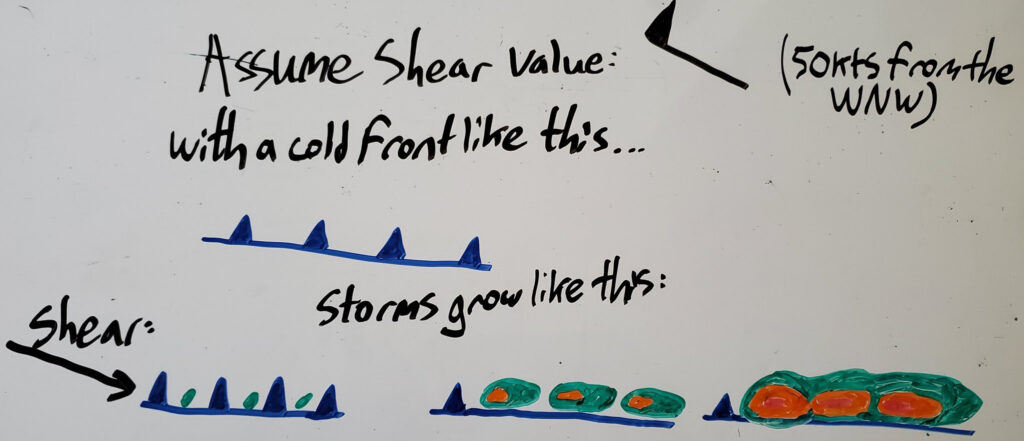 Assume Shear Value:
(50kts from the
WNW)
with a cold front like this...
Storms grow like this:
Shear: